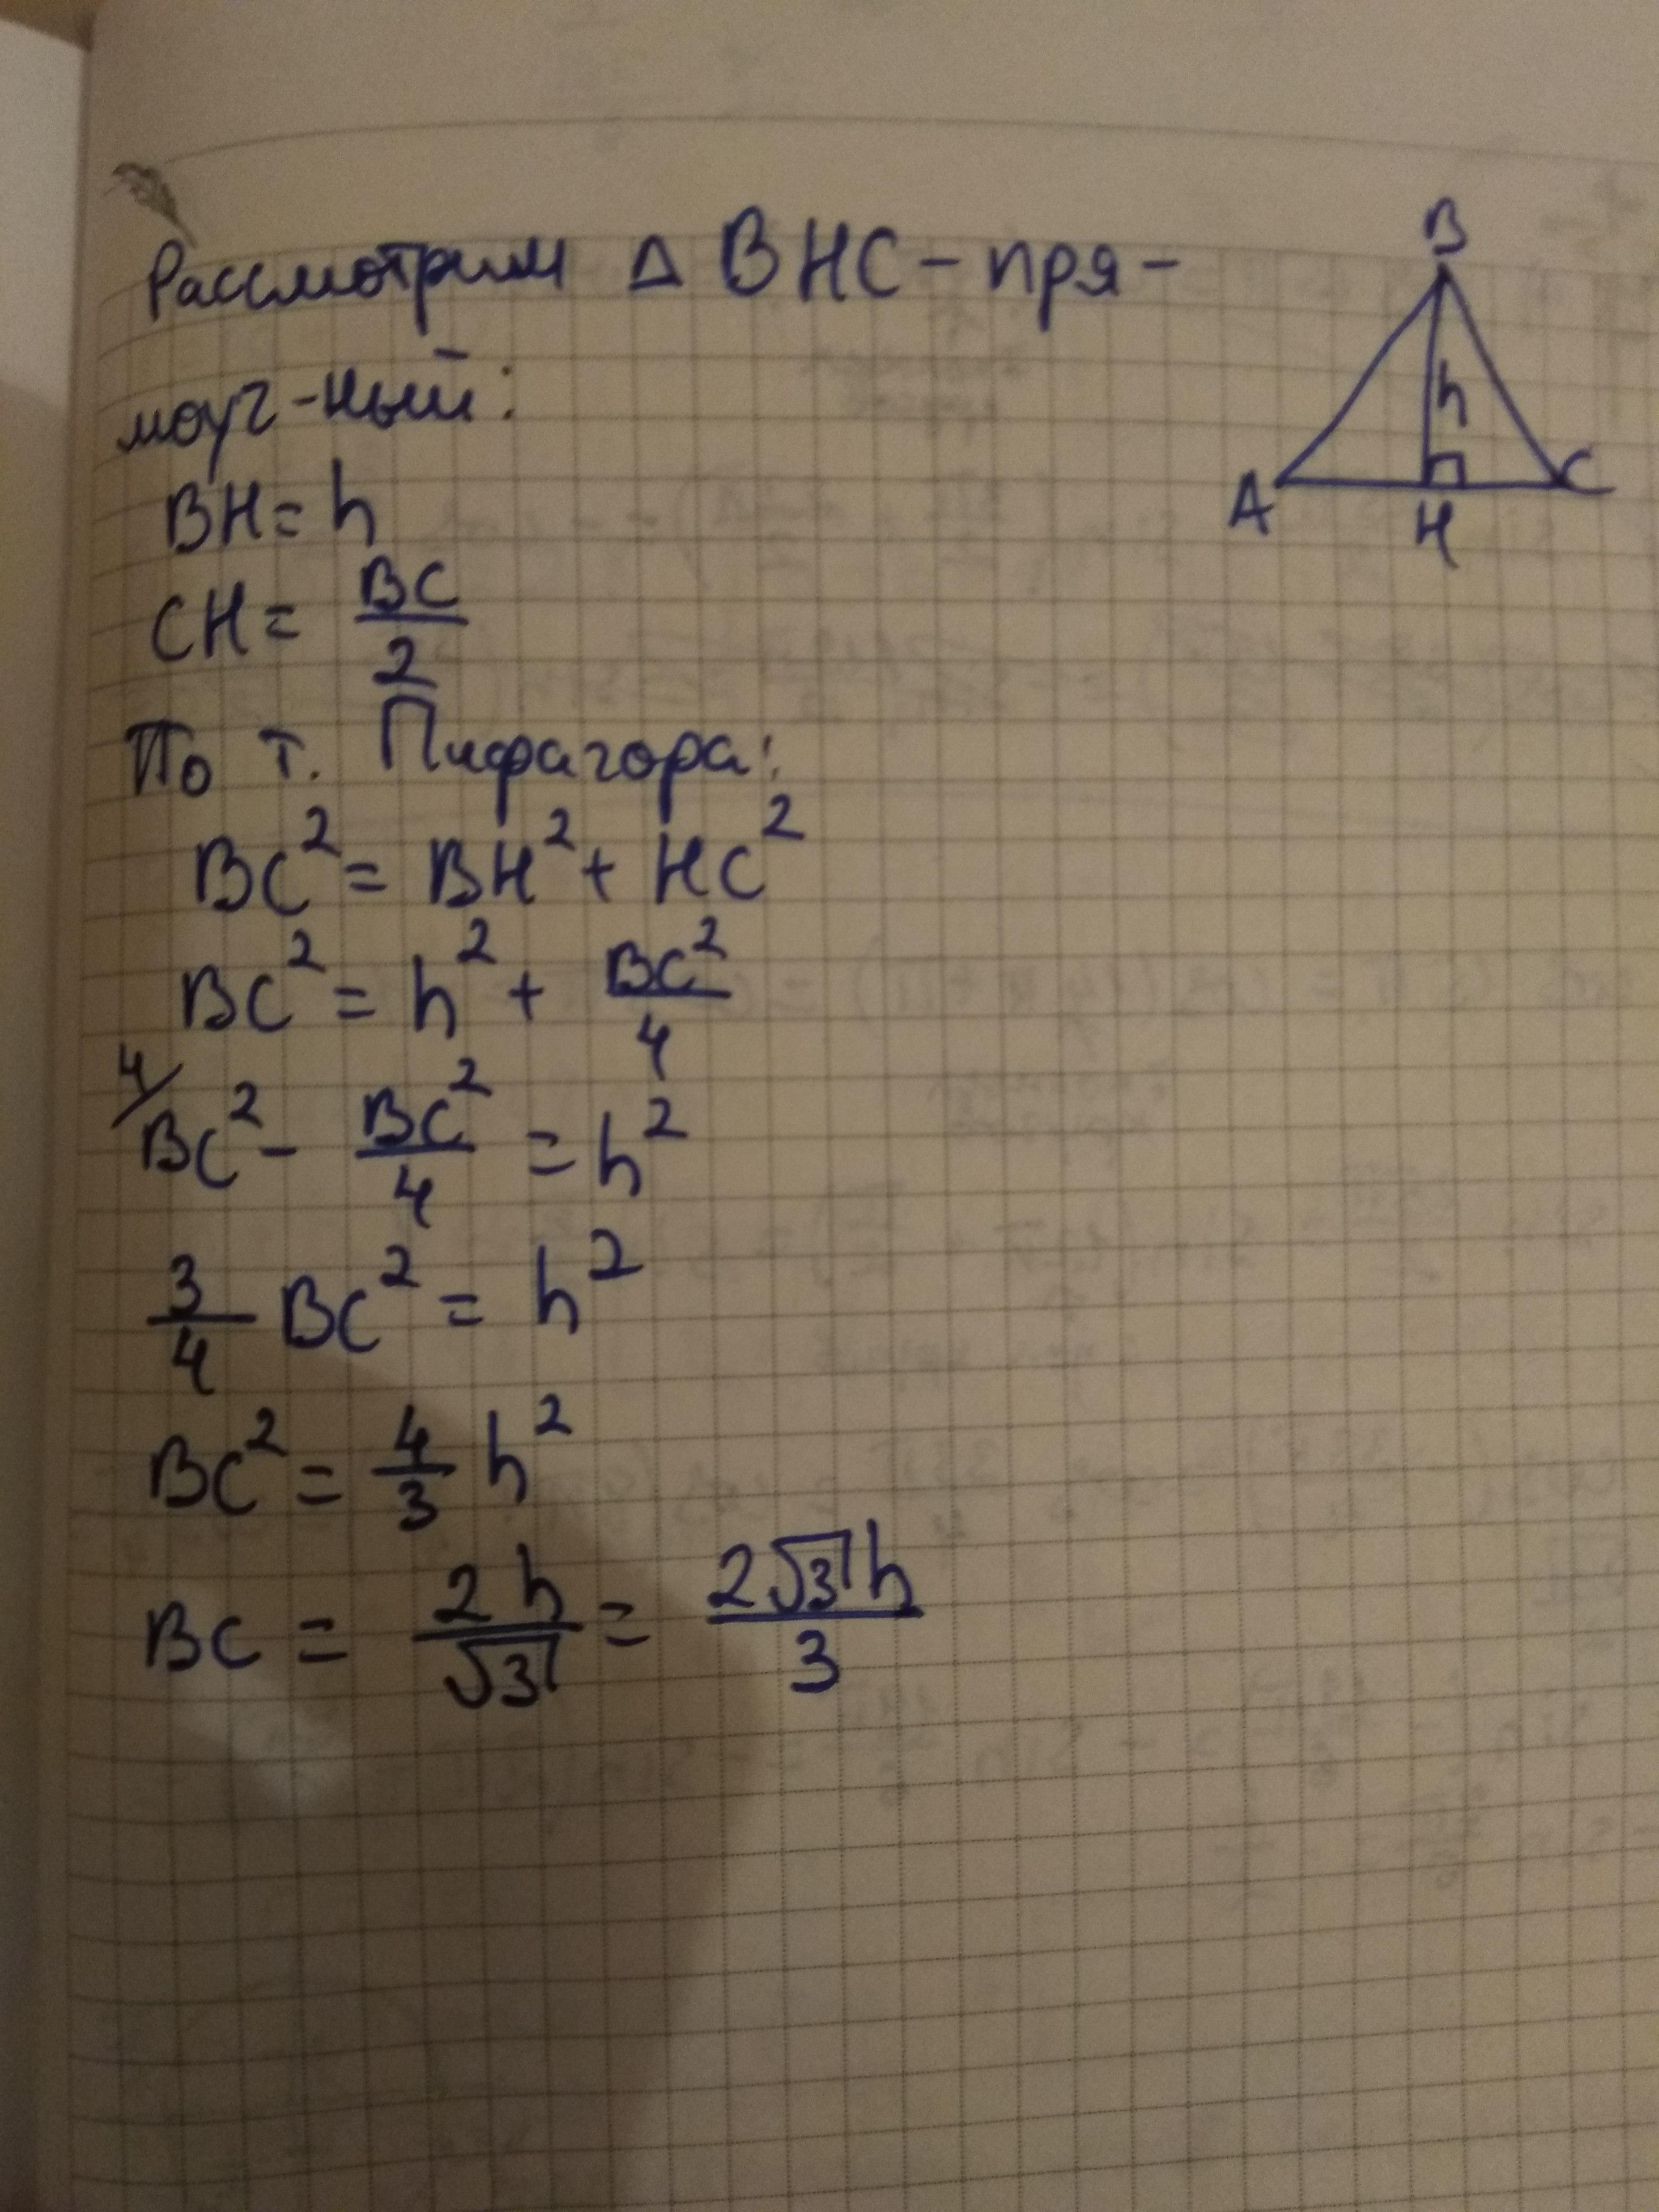 Рассмотрим Δ BHC - пря-
моуг-ный:
BH = h
CH = BC/2
По т. Пифагора:
BC² = BH² + HC²
BC² = h² + BC²/4
4/ BC² - BC²/4 = h²
3/4 BC² = h²
BC² = 4/3 h²
BC = 2h/√3 = 2√3h/3
B
h
A
H
C